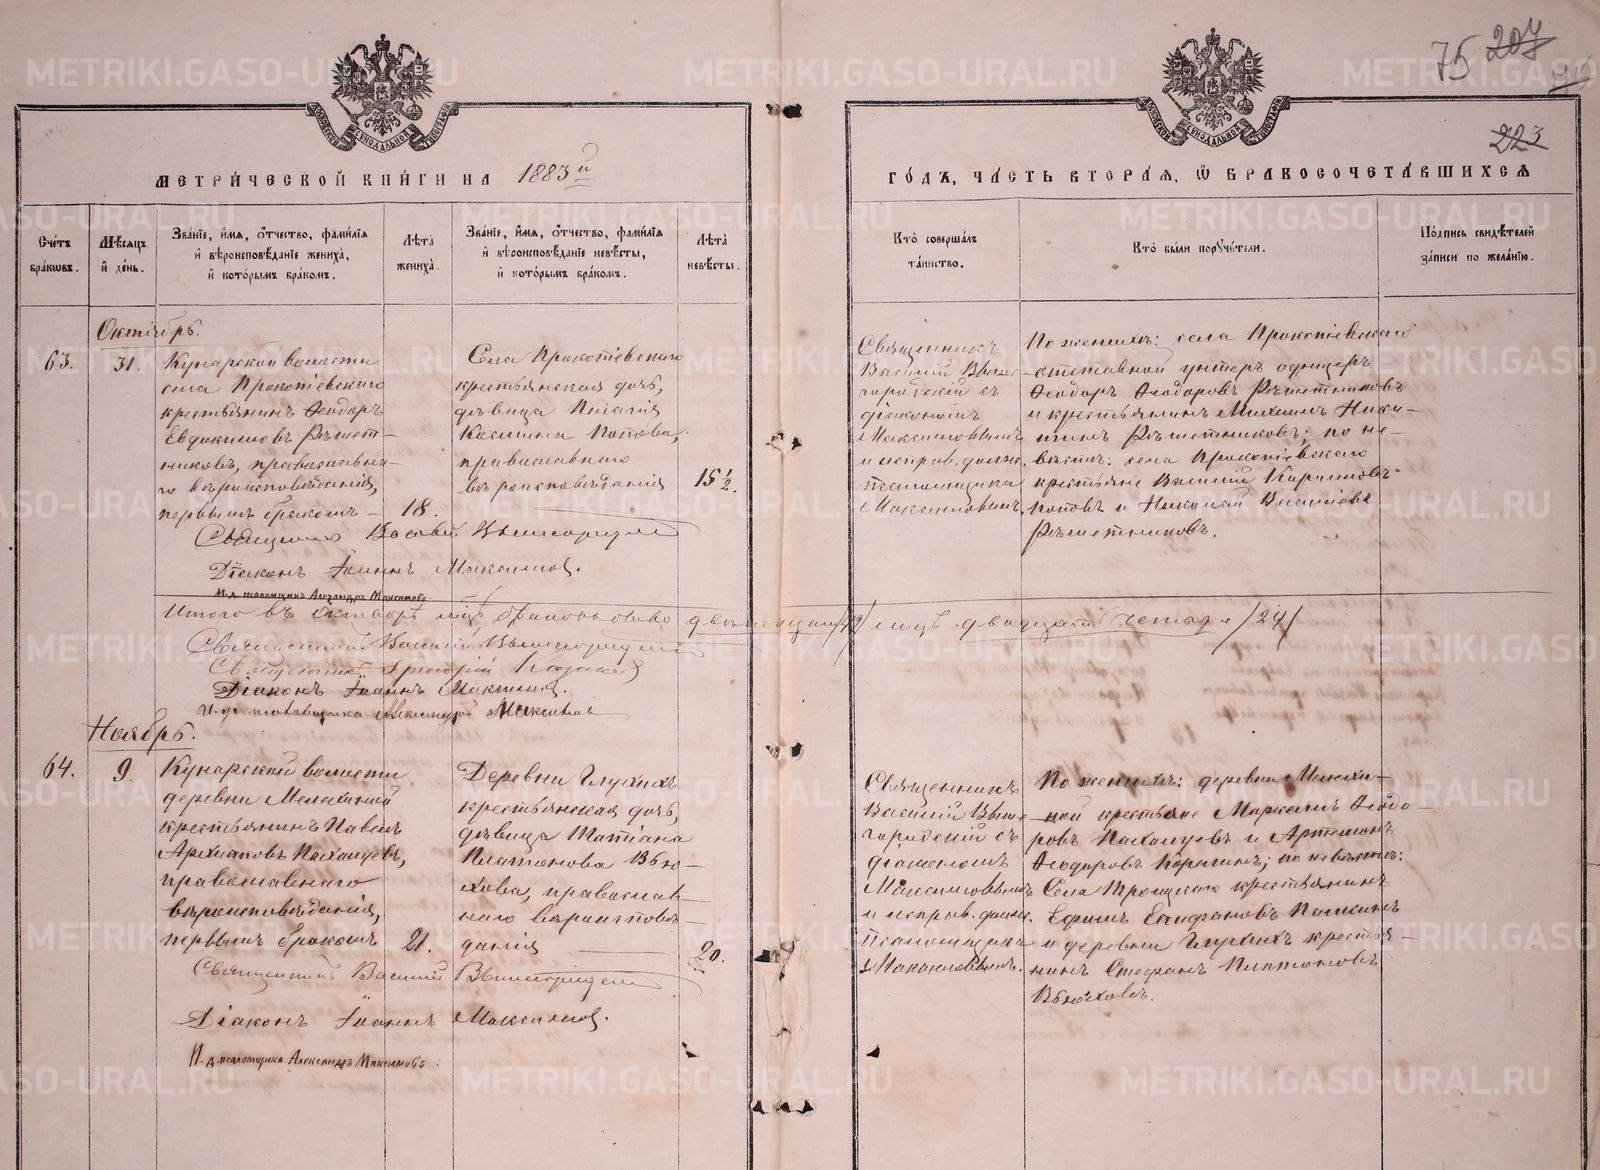 75 207
223
МЕТРИ́ЧЕСКОЙ КНИ́ГИ НА 1883й
ГО́ДЪ, ЧА́СТЬ ВТОРА́Я, Ѡ БРАКОСОЧЕТА́ВШИХСЯ
Сче́тъ бра́ковъ.
Мѣ́сяцъ и де́нь.
Зва́ніе, и́мя, о́тчество, фами́лія и вѣроисповѣ́даніе жениха̀, и кото́рымъ бра́комъ.
Лѣ́та жениха̀.
Зва́ніе, и́мя, о́тчество, фами́лія и вѣроисповѣ́даніе невѣ́сты, и кото́рымъ бра́комъ.
Лѣ́та невѣ́сты.
Кто̀ соверша́лъ та́инство.
Кто̀ бы́ли поручи́тели.
По́дпись свидѣ́телей за́писи по жела́нію.
Октябрь.
63.
31.
Кунарской волости
села Прокопіевскаго
крестьянинъ Ѳеодоръ
Евдокимовъ Рѣшет-
никовъ, православна-
го вѣроисповѣданія,
первымъ бракомъ
18.
Села Прокопіевскаго
крестьянская дочь,
дѣвица Пелагія
Космина Попова,
православнаго
вѣроисповѣданія
15 ½.
Священникъ
Василій Выше-
городскій съ
діакономъ
Максимовымъ
и исправ. должн.
псаломщика
Максимовымъ.
По женихѣ: села Прокопіевскаго
отставной унтеръ офицеръ
Ѳеодоръ Ѳеодоровъ Рѣшетниковъ
и крестьянинъ Михаилъ Ники-
тинъ Рѣшетниковъ; по не-
вѣстѣ: села Прокопіевскаго
крестьяне Василій Кириловъ
Поповъ и Николай Василіевъ
Рѣшетниковъ.
Священникъ Василій Вышегородскій
Діаконъ Іоаннъ Максимовъ.
И.д. псаломщика Александръ Максимовъ
Итого въ Октябрѣ м-цѣ браковъ двѣнадцать /12/ лицъ двадцать четыре /24/
Священникъ Василій Вышегородскій
Священникъ Григорій
Діаконъ Іоаннъ Максимовъ.
И. д. псаломщика Александръ Максимовъ
Ноябрь.
64.
9.
Кунарской волости
деревни Мелехиной
крестьянинъ Павелъ
Архиповъ Пахалуевъ,
православнаго
вѣроисповѣданія,
первымъ бракомъ
21.
Деревни Глухихъ
крестьянская дочь,
дѣвица Татіана
Платонова Вью-
хова, православ-
наго вѣроисповѣ-
данія
20.
Священникъ
Василій Выше-
городскій съ
діакономъ
Максимовымъ
и исправ. должн.
псаломщика
Максимовымъ.
По женихѣ: деревни Мелехи-
ной крестьяне Маркелъ Ѳеодо-
ровъ Пахалуевъ и Артемонъ
Ѳеодоровъ; по невѣстѣ:
Села Троицкаго крестьянинъ
Ефимъ Епифановъ Пашкинъ
и деревни Глухихъ крестья-
нинъ Стефанъ Платоновъ
Вьюховъ.
Священникъ Василій Вышегородскій
Діаконъ Іоаннъ Максимовъ.
И. д. псаломщика Александръ Максимовъ.
METRIKI.GASO-URAL.RU